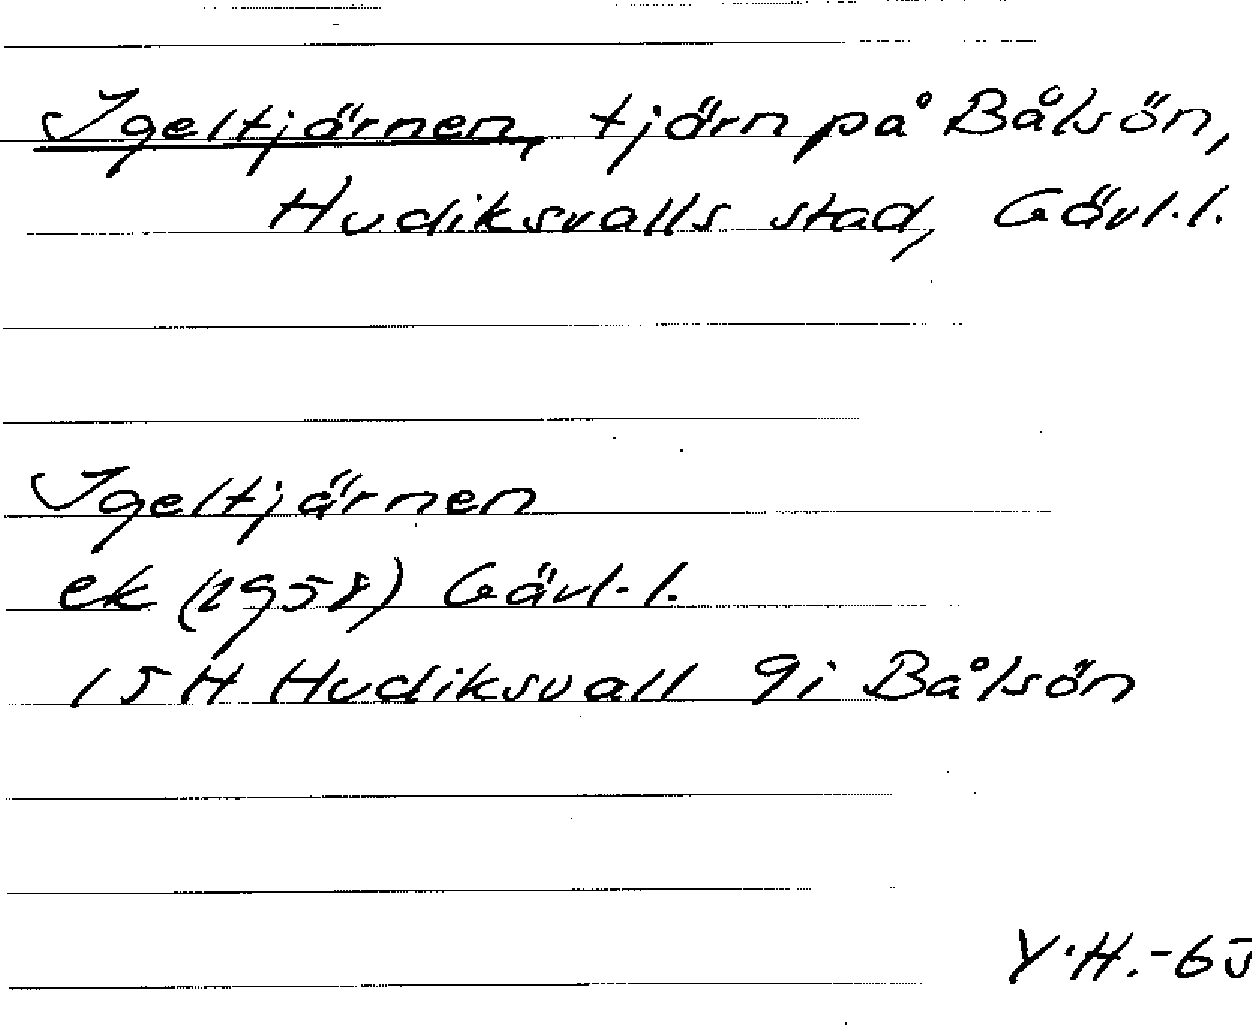 Igeltjärnen, tjärn på Bålsön,
Hudiksvalls stad, Gävl.l.
Igeltjärnen
ek (1958) Gävl.l.
15H Hudiksvall 9i Bålsön
Y.H.-65